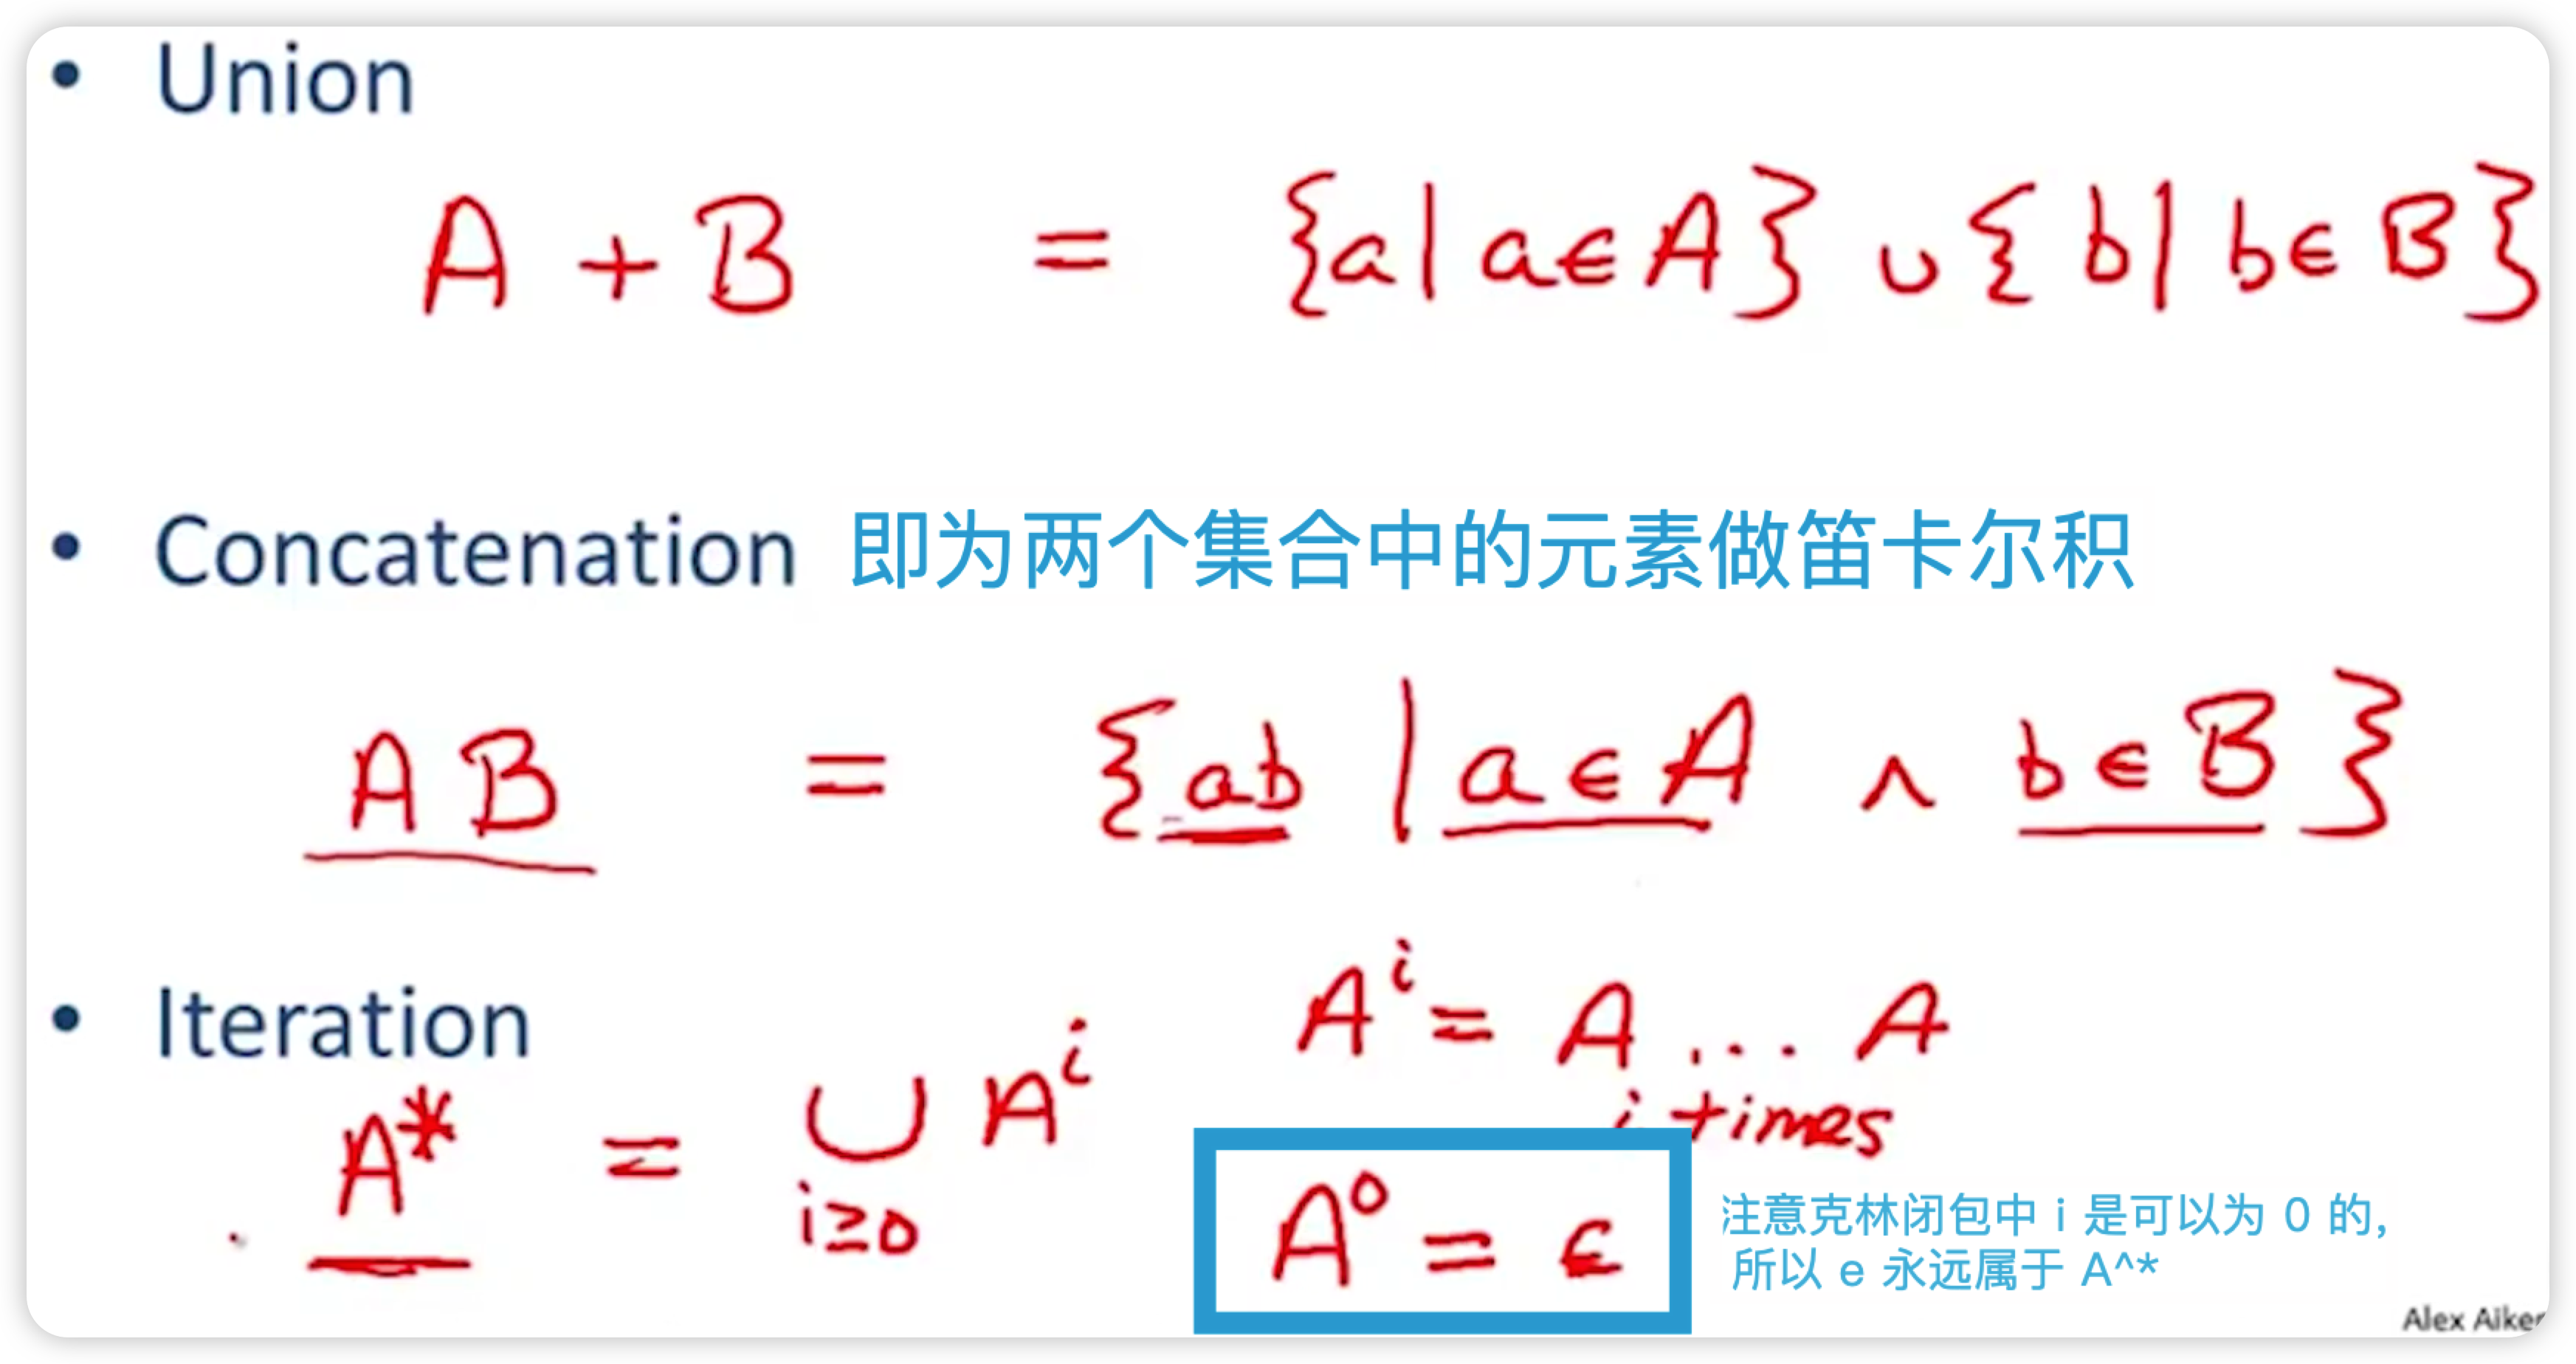 • Union
A + B = {a | a ∈ A} ∪ { b | b ∈ B}
• Concatenation 即为两个集合中的元素做笛卡尔积
A B = {ab | a ∈ A ∧ b ∈ B }
• Iteration
A* = ∪ Aⁱ
i≥0
Aⁱ = A ... A
i times
A⁰ = ϵ
注意克林闭包中 i 是可以为 0 的,
所以 e 永远属于 A^*
Alex Aiken